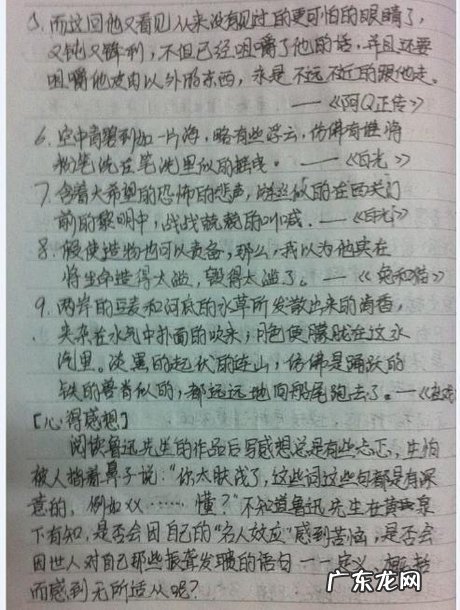 5. 而这回他又看见从来没有见过的更可怕的眼睛了,
又钝又锋利, 不但已经咀嚼了他的话, 并且还要
咀嚼他皮肉以外的东西, 永是不远不近的跟他走。
——《阿Q正传》
6. 空中青碧到如一片海, 略有些浮云, 仿佛有谁将
粉笔洗在笔洗里似的摇曳。 ——《白光》
7. 含着大希望的恐怖的悲声, 游丝似的在西关门
前的黎明中, 战战兢兢的叫喊. ——《白光》
8. 假使造物也可以责备, 那么, 我以为他实在
将生命造得太滥, 毁得太滥了。 ——《兔和猫》
9. 两岸的豆麦和河底的水草所发散出来的清香,
夹杂在水气中扑面的吹来; 月色便朦胧在这水
汽里。淡黑的起伏的连山, 仿佛是踊跃的
铁的兽脊似的, 都远远地向船尾跑去了。——《社戏
[心得感想]
阅读鲁迅先生的作品后写感想总是有些忐忑, 生怕
被人指着鼻子说: "你太肤浅了, 这些词这些句都是有深
意的, 例如XX…… 懂?" 不知道鲁迅先生在黄泉
下有知, 是否会因自己的"名人效应"感到苦恼, 是否会
因世人对自己那些振聋发聩的语句一一定义
而感到无所适从呢?
广东龙网